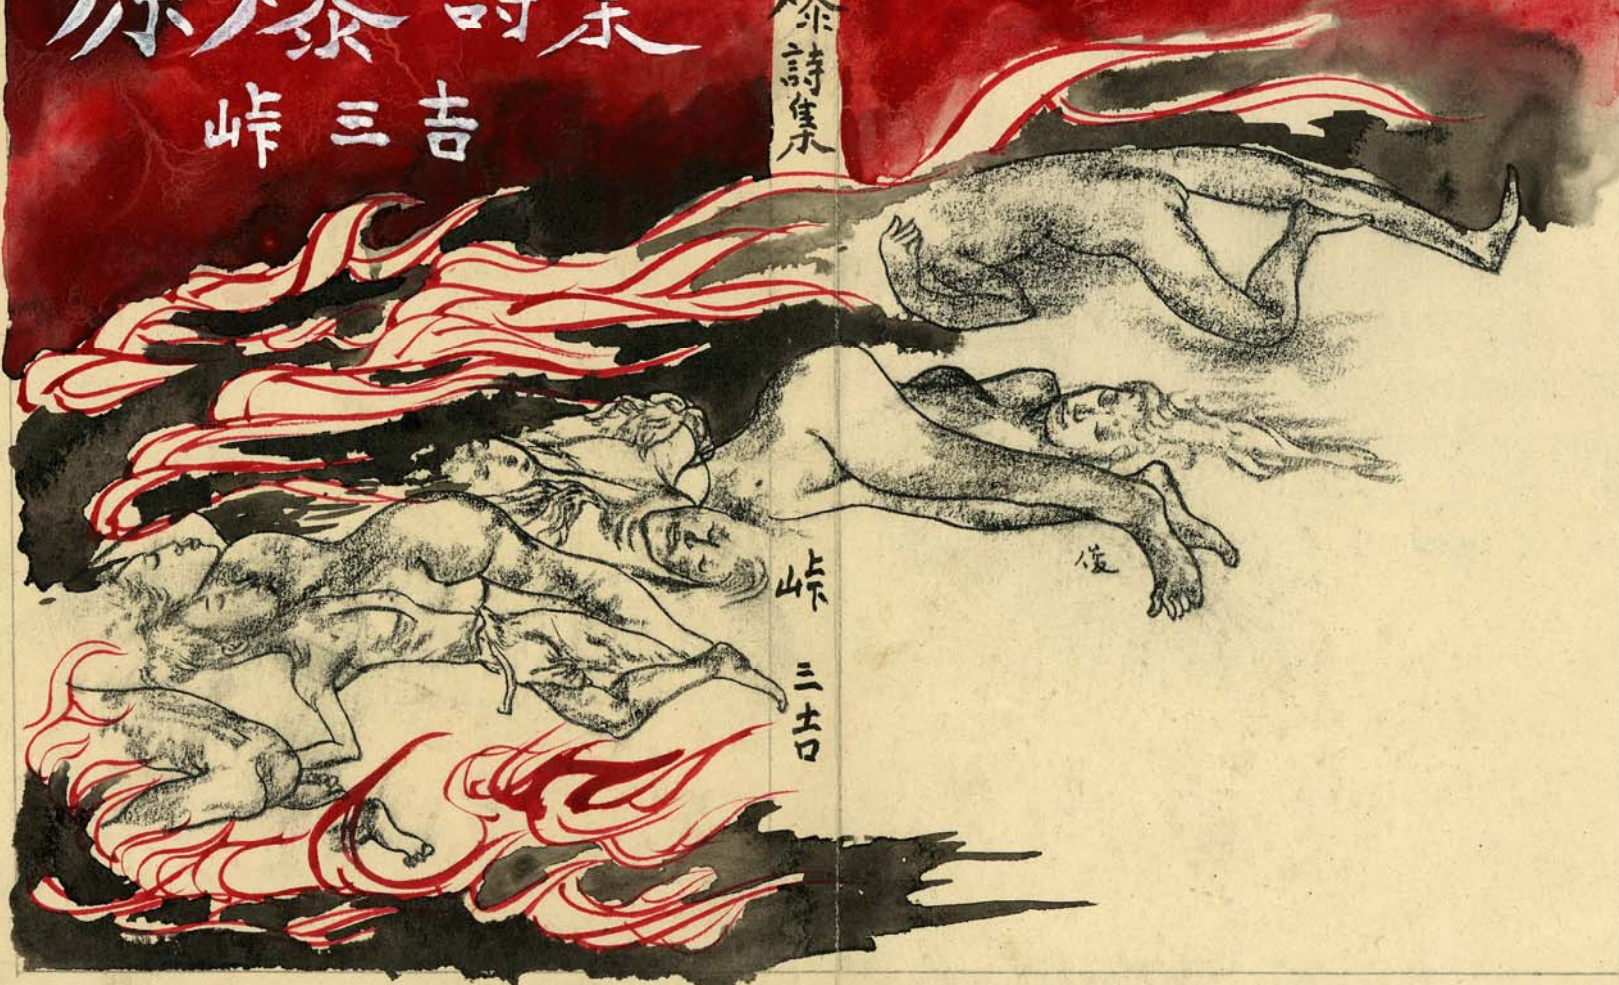 原爆詩集
峠三吉
爆詩集
峠三吉
俊